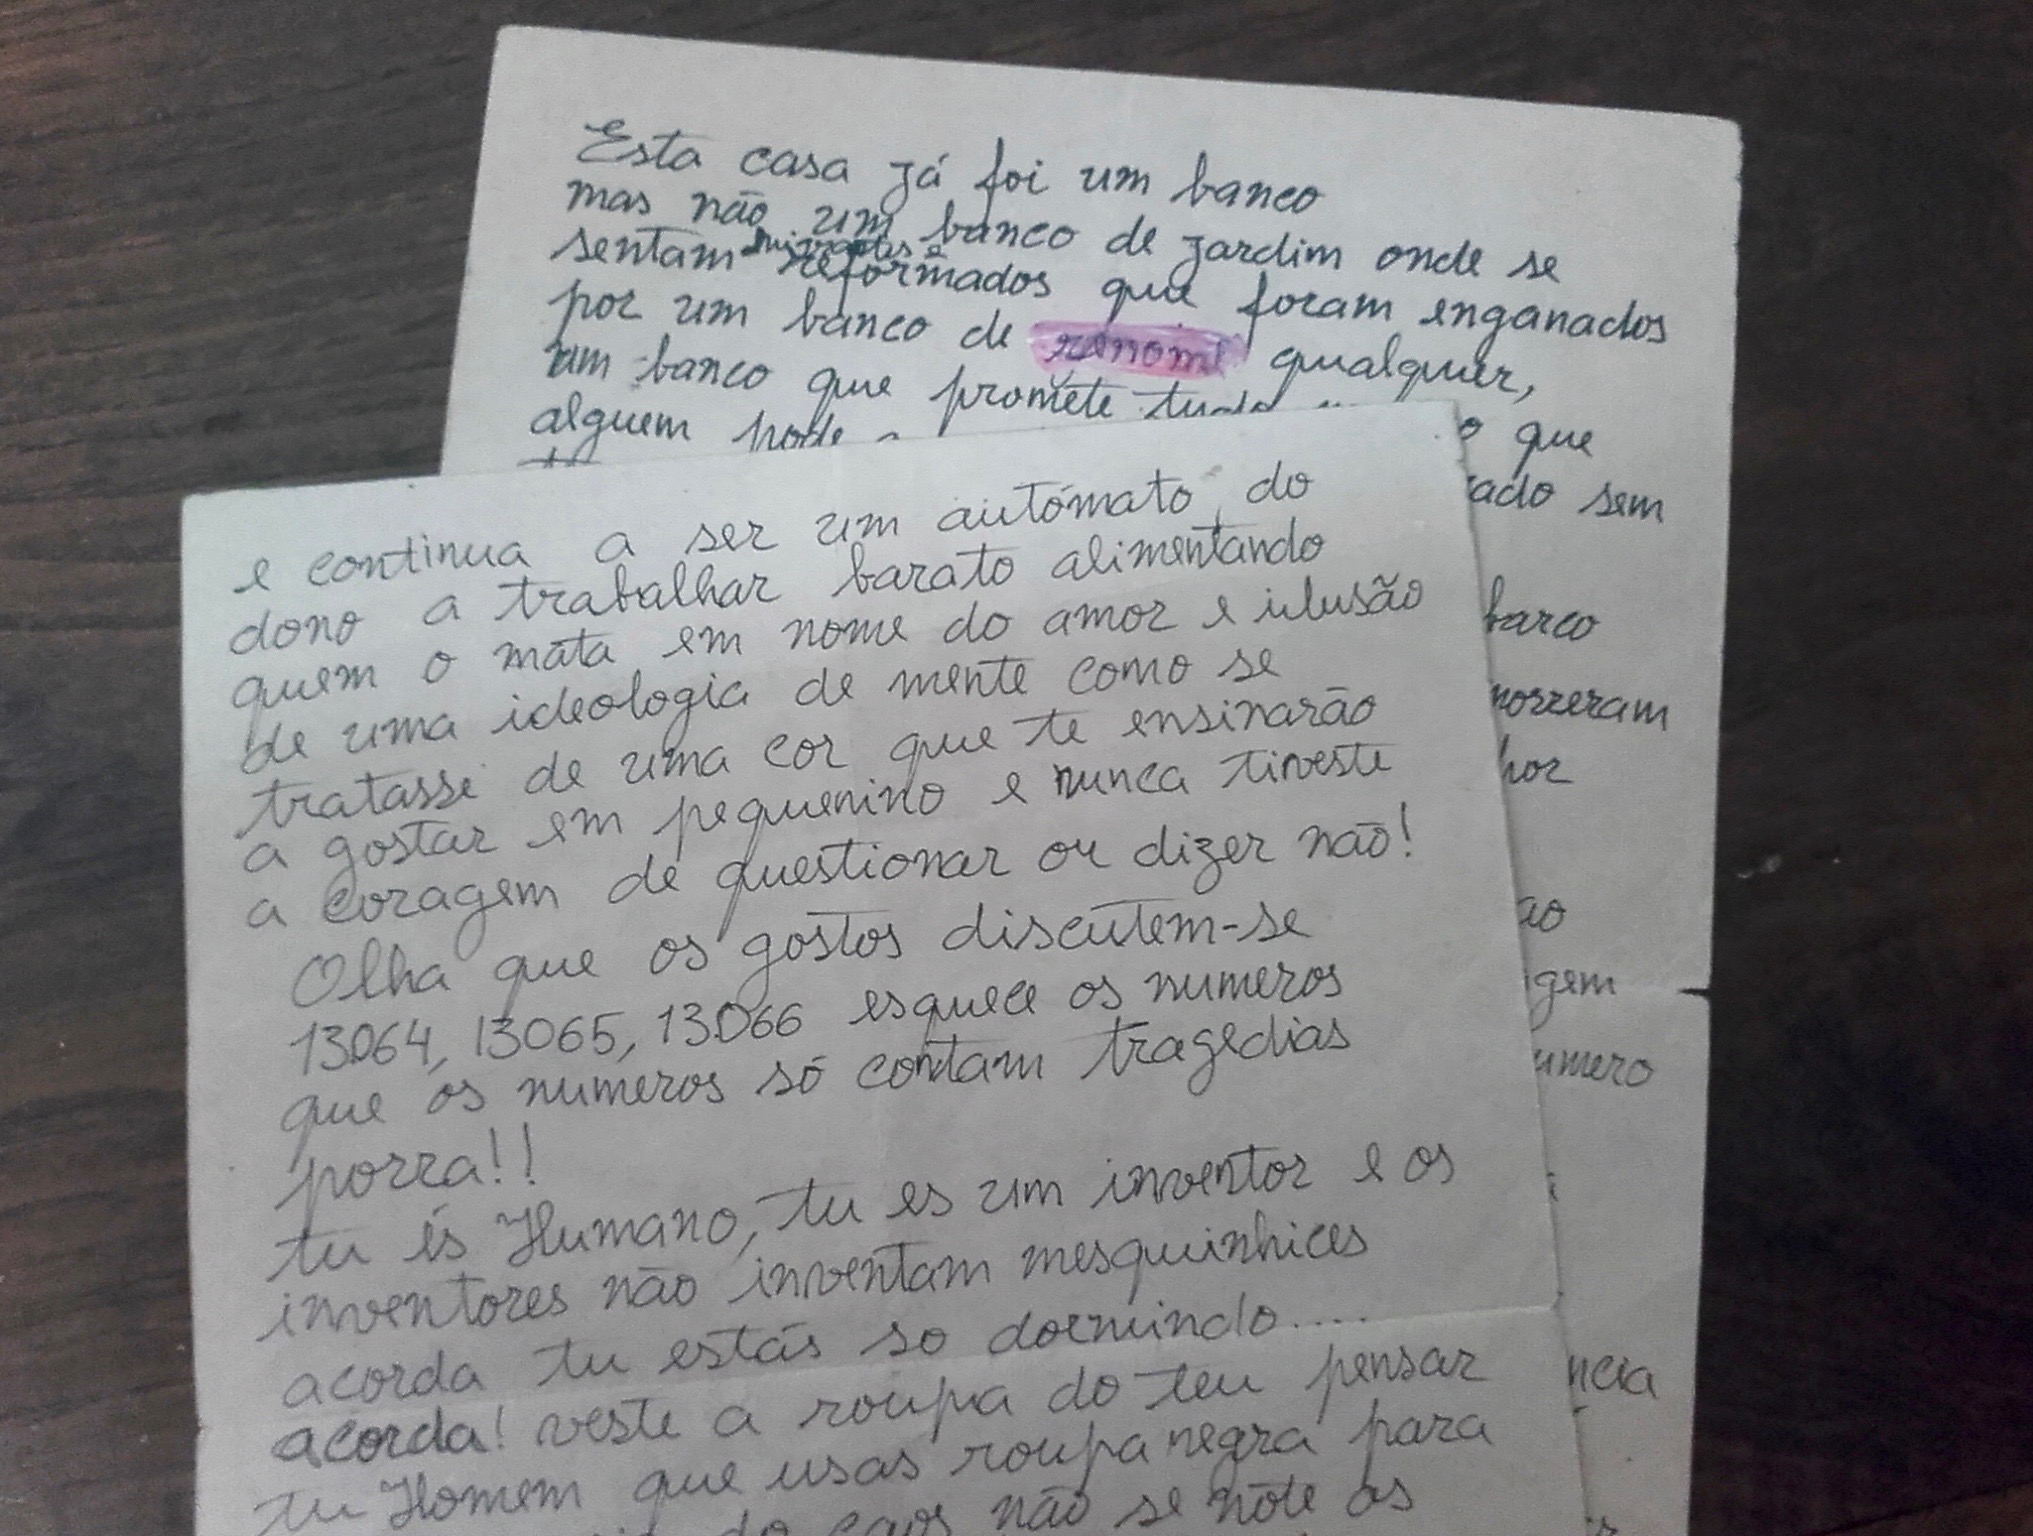 Esta casa já foi um banco
mas não um banco de jardim onde se
sentam mirantes e reformados que foram enganados
por um banco de qualquer,
um banco que promete tudo
alguem pode o que
ado sem
barco
morreram
hor
ao
gem
umero
ncia
e continua a ser um autómato do
dono a trabalhar barato alimentando
quem o mata em nome do amor e ilusão
de uma ideologia de mente como se
tratasse de uma cor que te ensinarão
a gostar em pequenino e nunca tiveste
a coragem de questionar ou dizer não!
Olha que os gostos discutem-se
13064, 13065, 13066 esquece os numeros
que os numeros só contam tragedias
porra!!
tu és Humano, tu es um inventor e os
inventores não inventam mesquinhices
acorda tu estás so dormindo....
acorda! veste a roupa do teu pensar
tu Homem que usas roupa negra para
do caos não se note os